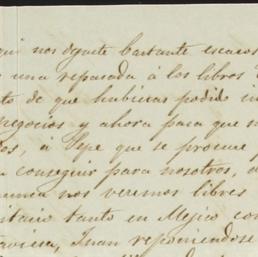 qui nos dejaste bastante escasos
una repasada á los libros
to de que hubieras podido in
negocios y ahora para que n
os, á Pepe que se procure
conseguir para nosotros, o
nunca nos veremos libres
tanto en Mejico com
Juan reponiendose